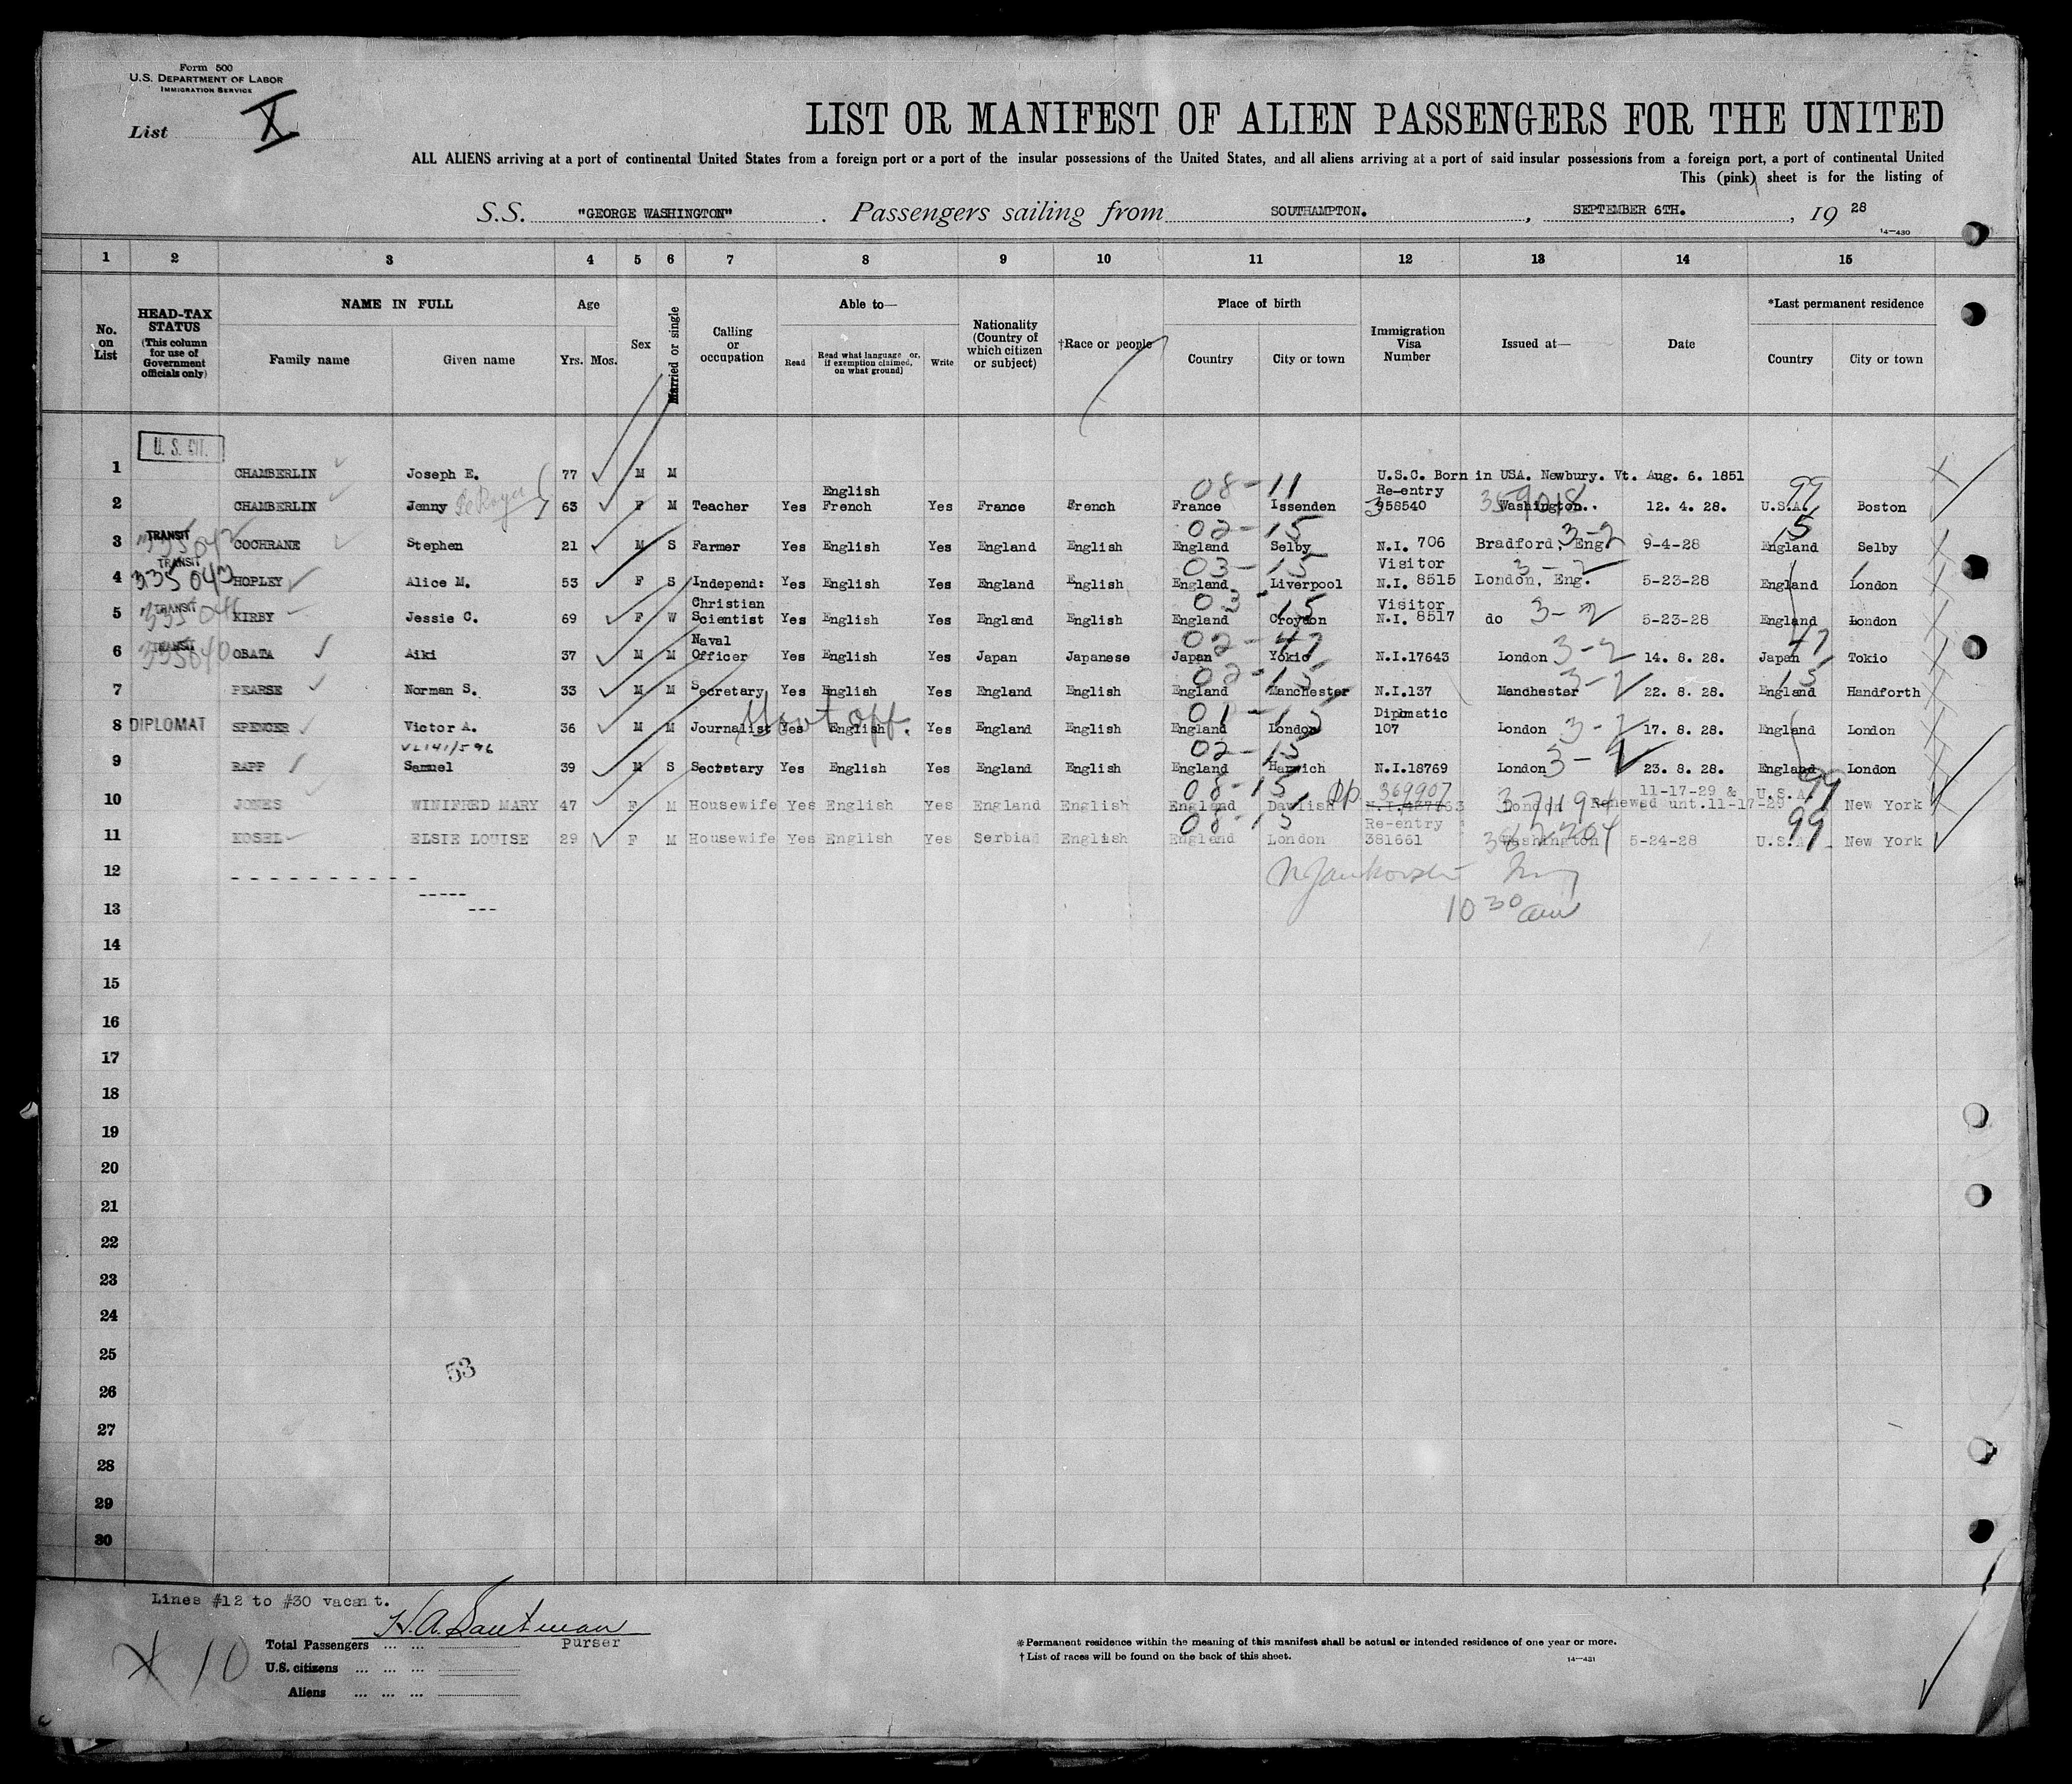 Form 500
U.S. DEPARTMENT OF LABOR
IMMIGRATION SERVICE
List X
LIST OR MANIFEST OF ALIEN PASSENGERS FOR THE UNITED
ALL ALIENS arriving at a port of continental United States from a foreign port or a port of the insular possessions of the United States, and all aliens arriving at a port of said insular possessions from a foreign port, a port of continental United
This (pink) sheet is for the listing of
S.S. "GEORGE WASHINGTON". Passengers sailing from SOUTHAMPTON. , SEPTEMBER 6TH. , 19 28
14-430
1 2 3 4 5 6 7 8 9 10 11 12 13 14 15
No. on List
HEAD-TAX STATUS (This column for use of Government officials only)
NAME IN FULL
Family name Given name
Age
Yrs. Mos.
Sex
Married or single
Calling or occupation
Able to—
Read Read what language or, if exemption claimed, on what ground) Write
Nationality (Country of which citizen or subject)
†Race or people
Place of birth
Country City or town
Immigration Visa Number
Issued at—
Date
*Last permanent residence
Country City or town
U. S. CIT.
1 CHAMBERLIN Joseph E. 77 M M U.S.C. Born in USA. Newbury. Vt. Aug. 6. 1851
08-11 99
English Re-entry
2 CHAMBERLIN Jenny 63 F M Teacher Yes French Yes France French France Issenden 358540 Washington.. 12. 4. 28. U.S.A. Boston
TRANSIT 02-15 3-2 15
3 COCHRANE Stephen 21 M S Farmer Yes English Yes England English England Selby N.I. 706 Bradford, Eng 9-4-28 England Selby
TRANSIT 03-15 Visitor 3-2
4 335043 HOPLEY Alice M. 53 F S Independ: Yes English Yes England English England Liverpool N.I. 8515 London, Eng. 5-23-28 England London
TRANSIT Christian 03-15 Visitor
5 KIRBY Jessie C. 69 F W Scientist Yes English Yes England English England Croydon N.I. 8517 do 3-2 5-23-28 England London
TRANSIT Naval 02-47 47
6 OBATA Aiki 37 M M Officer Yes English Yes Japan Japanese Japan Yokio N.I.17643 London 3-2 14. 8. 28. Japan Tokio
02-15 3-2 15
7 PEARSE Norman S. 33 M M Secretary Yes English Yes England English England Manchester N.I.137 Manchester 22. 8. 28. England Handforth
Govt off. 01-15 Diplomatic
8 DIPLOMAT SPENCER Victor A. 36 M M Journalist Yes English Yes England English England London 107 London 3-2 17. 8. 28. England London
02-15
9 RAPP Samuel 39 M S Secretary Yes English Yes England English England Harwich N.I.18769 London 3-2 23. 8. 28. England London
08-15 369907 11-17-29 & 99
10 JONES WINIFRED MARY 47 F M Housewife Yes English Yes England English England Dawlish London Renewed unt.11-17-29 U.S.A. New York
08-15 Re-entry 99
11 KOSEL ELSIE LOUISE 29 F M Housewife Yes English Yes Serbian English England London 381661 Washington 5-24-28 U.S.A. New York
12
10 30 am
13
14
15
16
17
18
19
20
21
22
23
24
53
25
26
27
28
29
30
Lines #12 to #30 vacant.
Purser
X 10
Total Passengers ... ...
U.S. citizens ... ... ...
Aliens ... ... ...
*Permanent residence within the meaning of this manifest shall be actual or intended residence of one year or more.
†List of races will be found on the back of this sheet.
14-431